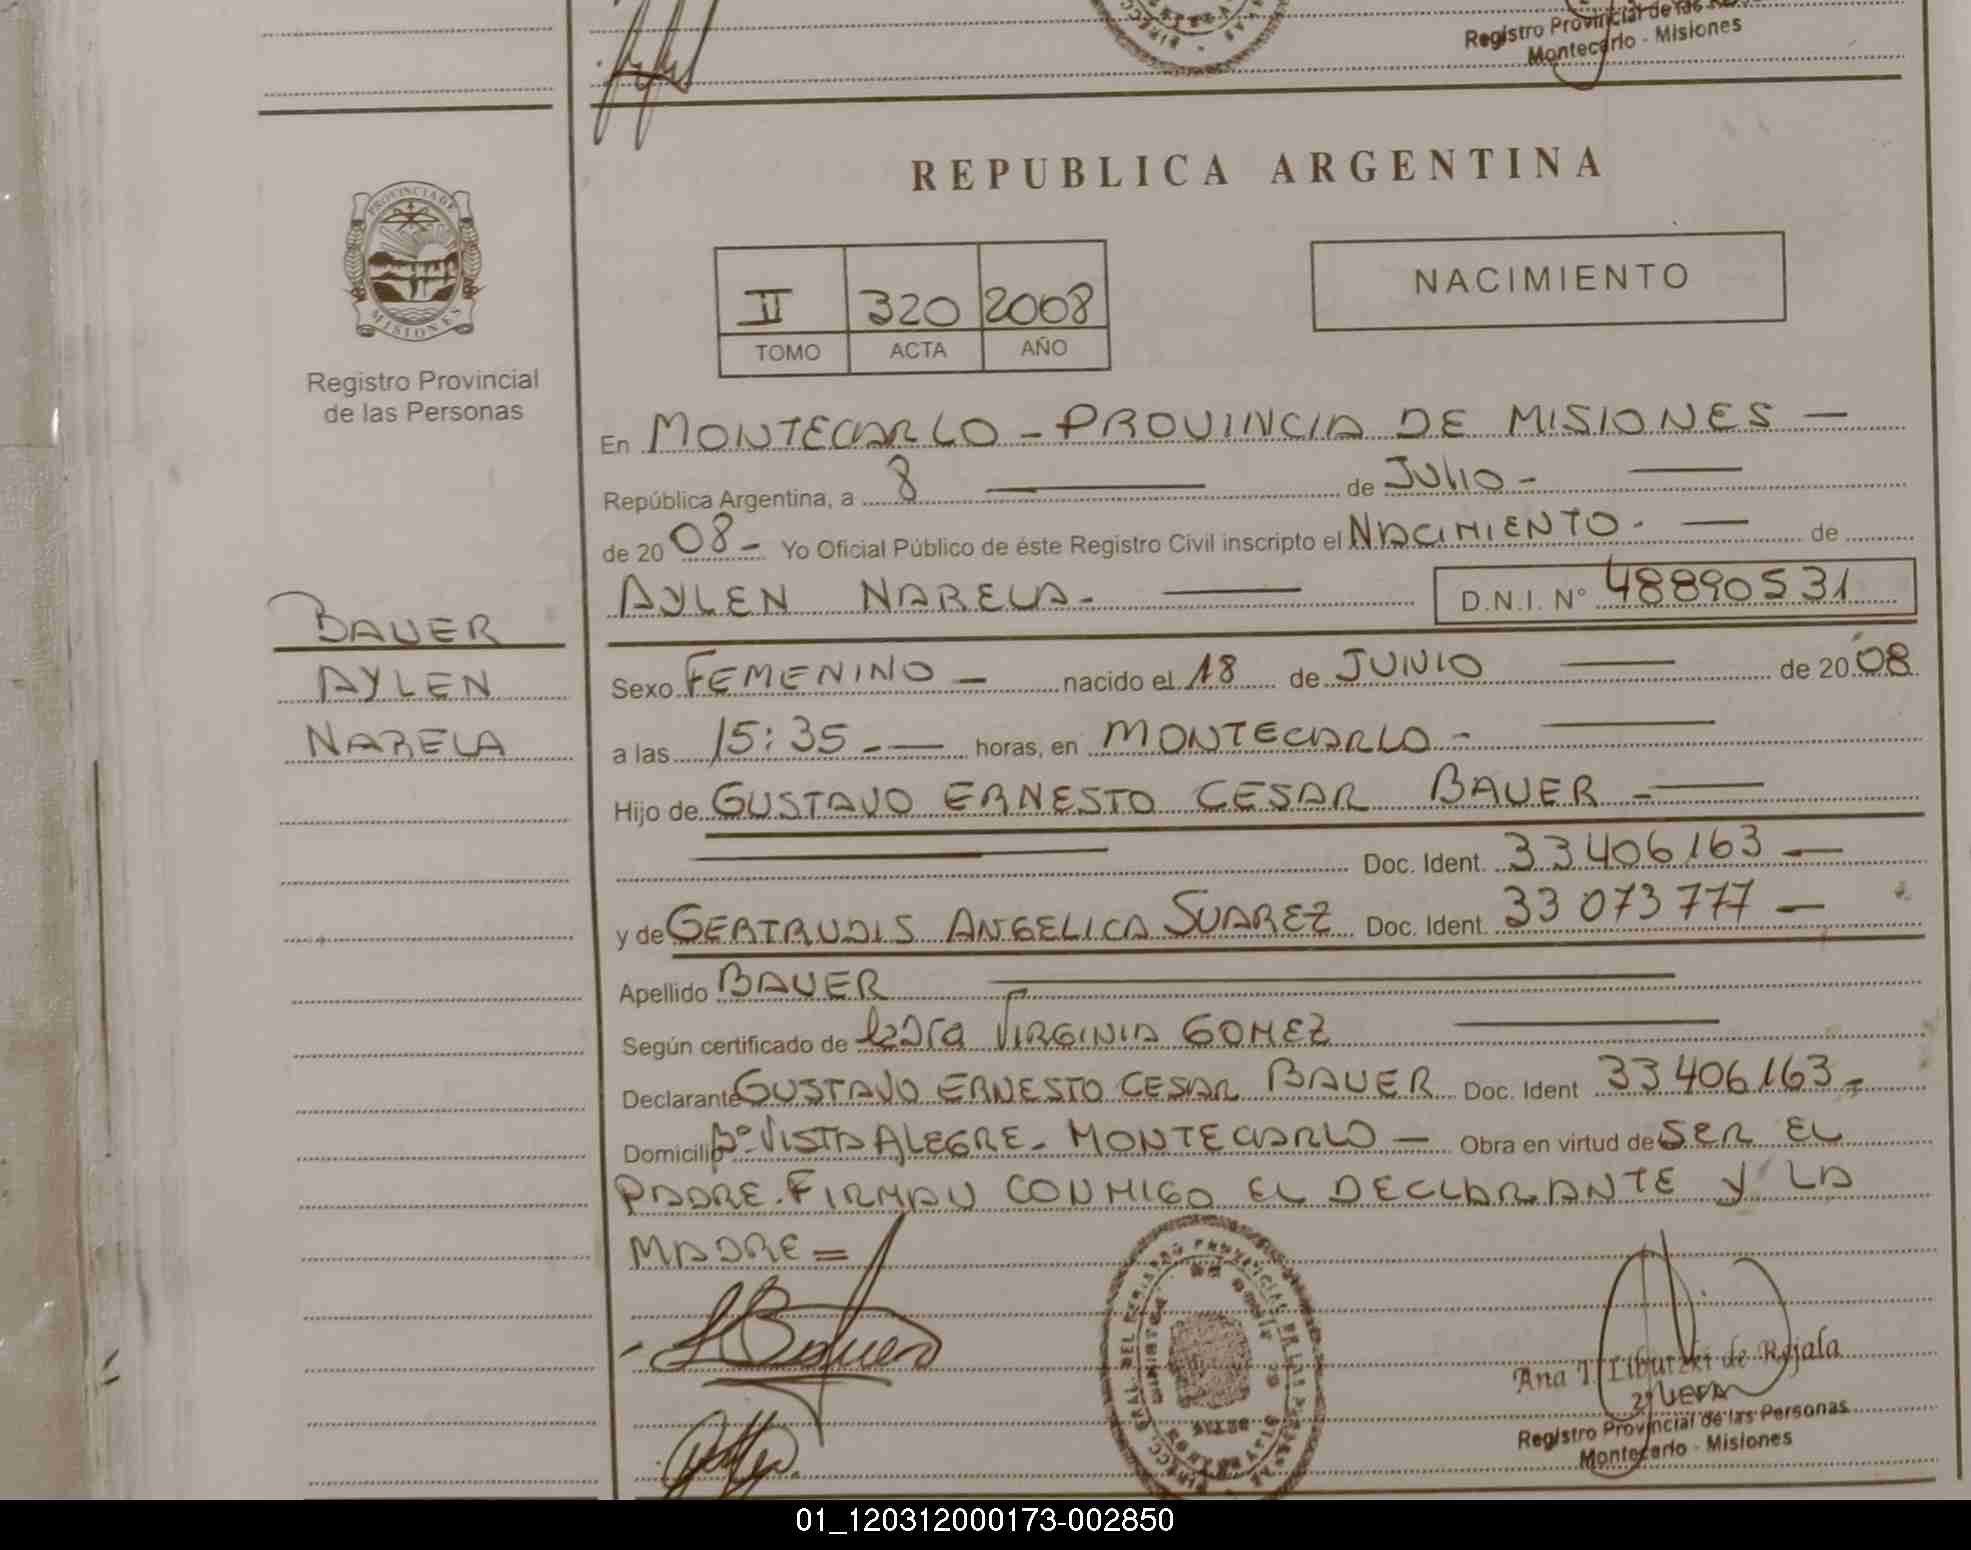 Registro Provincial de las
Montecarlo - Misiones
PROVINCIA DE
MISIONES
Registro Provincial
de las Personas
BAUER
AYLEN
NARELA
REPUBLICA ARGENTINA
II 320 2008
TOMO ACTA AÑO
NACIMIENTO
En MONTECARLO - PROVINCIA DE MISIONES —
República Argentina, a 8 — de JULIO -
de 20 08 - Yo Oficial Público de éste Registro Civil inscripto el NACIMIENTO - — de
AYLEN NARELA - — D.N.I. N° 48890531
Sexo FEMENINO — nacido el 18 de JUNIO — de 20 08
a las 15:35 - — horas, en MONTECARLO - —
Hijo de GUSTAVO ERNESTO CESAR BAUER - —
— Doc. Ident. 33406163 —
y de GERTRUDIS ANGELICA SUAREZ Doc. Ident. 33 073 777 —
Apellido BAUER —
Según certificado de VIRGINIA GOMEZ —
Declarante GUSTAVO ERNESTO CESAR BAUER Doc. Ident 33406163 -
Domicilio B° VISTA ALEGRE - MONTECARLO — Obra en virtud de SER EL
PADRE. FIRMAN CONMIGO EL DECLARANTE Y LA
MADRE =
Bauer
Ana T. de Rojala
Registro Provincial de las Personas
Montecarlo - Misiones
01_120312000173-002850